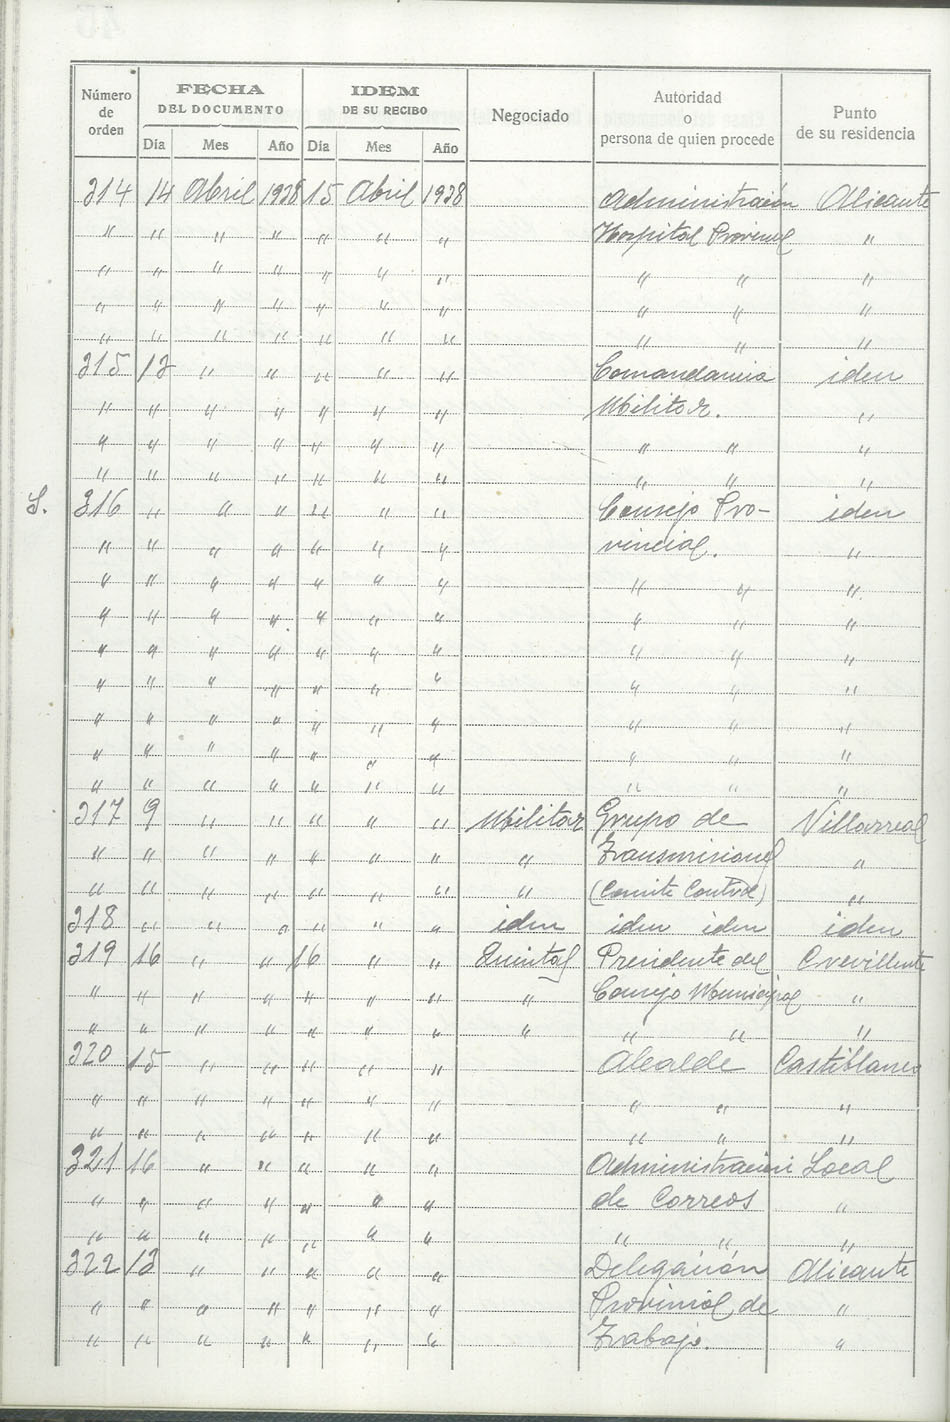 Número de orden FECHA DEL DOCUMENTO IDEM DE SU RECIBO Negociado Autoridad o persona de quien procede Punto de su residencia
Día Mes Año Día Mes Año
314 14 Abril 1938 15 Abril 1938 Administración Alicante
" " " " " " " Hospital Provincial "
" " " " " " " " " "
" " " " " " " " " "
" " " " " " " " " "
315 13 " " " " " Comandancia iden
" " " " " " " Militar. "
" " " " " " " " " "
" " " " " " " " " "
S. 316 " " " " " " Consejo Pro- iden
" " " " " " " vincial. "
" " " " " " " " " "
" " " " " " " " " "
" " " " " " " " " "
" " " " " " " " " "
" " " " " " " " " "
" " " " " " " " " "
" " " " " " " " " "
317 9 " " " " " Militar Grupo de Villarreal
" " " " " " " " Transmisiones "
" " " " " " " " (Comite Control) "
318 " " " " " " iden iden iden iden
319 16 " " 16 " " Quintas Presidente del Crevillente
" " " " " " " " Consejo Municipal "
" " " " " " " " " " "
320 15 " " " " " Alcalde Castiblanco
" " " " " " " " " "
" " " " " " " " " "
321 16 " " " " " Administración Local
" " " " " " " de Correos "
" " " " " " " " " "
322 13 " " " " " Delegación Alicante
" " " " " " " Provincial de "
" " " " " " " Trabajo. "